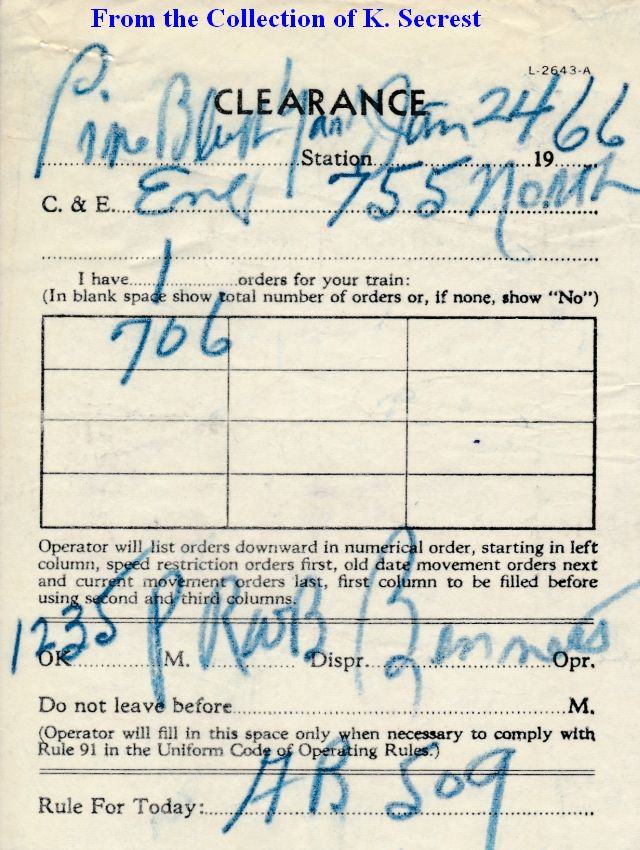 From the Collection of K. Secrest
L-2643-A
CLEARANCE
Pine Bluff Yard Jan 24 66
Station 19
C. & E. Eng 755 North
I have 1 orders for your train:
(In blank space show total number of orders or, if none, show "No")
706
Operator will list orders downward in numerical order, starting in left
column, speed restriction orders first, old date movement orders next
and current movement orders last, first column to be filled before
using second and third columns.
OK 1235 P M. RWB Dispr. Bennett Opr.
Do not leave before M.
(Operator will fill in this space only when necessary to comply with
Rule 91 in the Uniform Code of Operating Rules.)
Rule For Today: AB 509